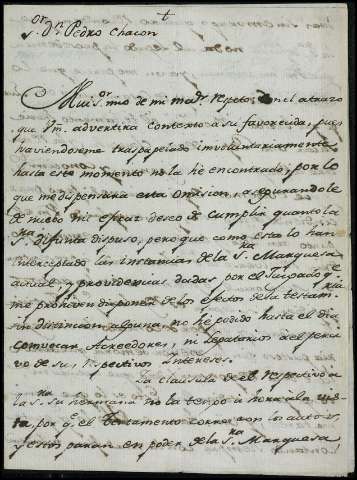 +
S.or Dn Pedro Chacon
Mui S.or mio de mi mad.r respeto, con el atrazo
que Vm. advertira contexto a su favorecida, pues
haviendoseme traspapelado involuntariamente
hasta este momento no la he encontrado, por lo
que me dispensara esta omision, asegurandole
de nuevo mi eficaz deseo de cumplir quanto la
S.ra difunta dispuso, pero que como esta lo han
interceptado las instancias de la S.ra Marquesa
actual y providencias dadas por el Juzgado q.e
me prohiven disponer de los efectos de su testam.ria
sin distincion alguna, no he podido hasta el dia
convocar Acreedores, ni Legatarios al percivo
vo de sus respectivos Intereses.
La clausula de el respectivo a
la S.ra su hermana no la tengo a hora a la vis-
ta por q.e el testamento corre con los autos
y estos paran en poder de la S.ra Marquesa